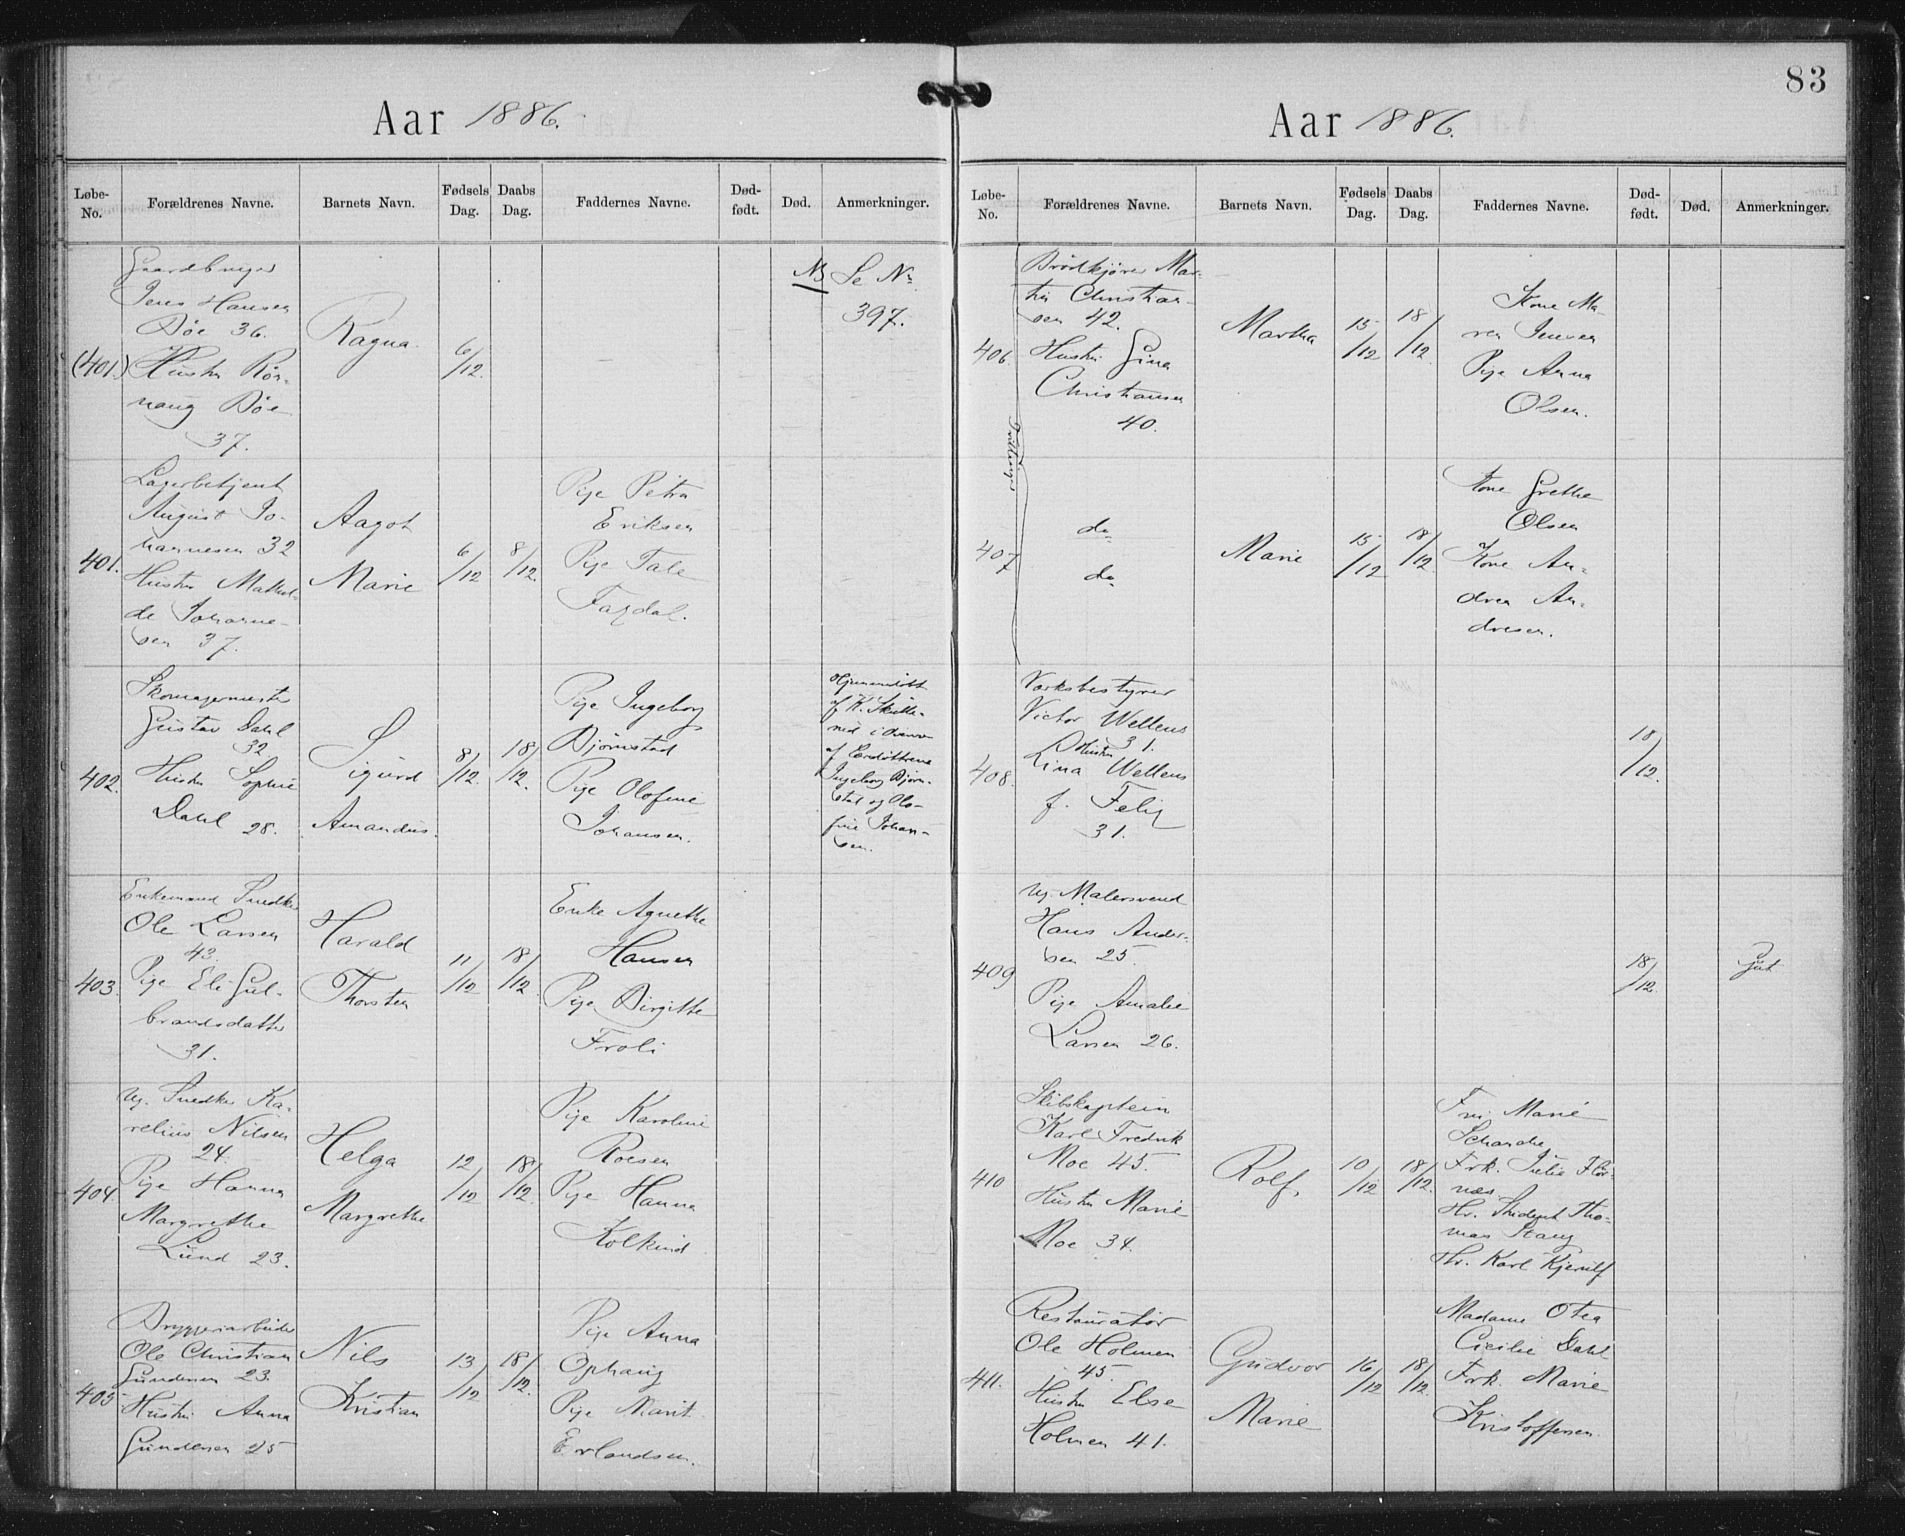 Aar 1886.
Løbe-No.
Forældrenes Navne.
Barnets Navn.
Fødsels Dag.
Daabs Dag.
Faddernes Navne.
Død-født.
Død.
Anmerkninger.
(401.)
Gaardbruger
Jens Hansen
Bøe 36.
Hustru Røn-
naug Bøe
37.
Ragna.
6/12.
NB Se No
397.
401.
Lagerbetjent
August Jo-
hannesen 32
Hustru Mathil-
de Johanne-
sen 37.
Aagot
Marie
6/12
8/12.
Pige Petra
Eriksen
Pige Tale
Fagdal.
402.
Skomagermester
Gustav Dahl
32
Hustru Sophie
Dahl 28.
Sigurd
Amandus.
8/12.
18/12.
Pige Ingeborg
Bjørnstad
Pige Olofine
Johansen.
Hjemmedøbt
af K.
af
Ingeborg Bjørn-
stad og Olo-
fine Johan-
sen.
403.
Enkemand Snedker
Ole Larsen
43.
Pige Eli Gul-
brandsdatter
31.
Harald
Thorsten
11/12
18/12
Enke Agnethe
Hansen
Pige Birgitte
Froli
404.
Ug. Snedker Ka-
relius Nilsen
24.
Pige Hanna
Margrethe
Lund 23.
Helga
Margrethe
12/12
18/12.
Pige Karoline
Roesen
Pige Hanna
Kolkind
405
Bryggeriarbeider
Ole Christian
Gundersen 23.
Hustru Anna
Gundersen 25
Nils
Kristian
13/12
18/12.
Pige Anna
Ophaug
Pige Marit
Erlandsen.
83
Aar 1886.
Løbe-No.
Forældrenes Navne.
Barnets Navn.
Fødsels Dag.
Daabs Dag.
Faddernes Navne.
Død-født.
Død.
Anmerkninger.
Tvillinger
406.
Brødkjører Mar-
tin Christian-
sen 42.
Hustru Gina
Christiansen
40.
Martha
15/12
18/12.
Kone Ma-
ren Jensen
Pige Anna
Olsen.
407
do
do
Marie
15/12
18/12.
Kone Grethe
Olsen
Kone An-
drea An-
dresen.
408.
Værksbestyrer
Victor Wellens
31.
Hustru
Lina Wellens
f. Felix
31.
18/12.
409
Ug. Malersvend
Hans Ander-
sen 25.
Pige Amalie
Larsen 26.
18/12.
Gut
410
Skibskaptein
Karl Fredrik
Moe 45.
Hustru Marie
Moe 34.
Rolf.
10/12
18/12.
Fru Marie
Schanche
Frk. Julie Flor-
næs.
Hr. Student Tho-
mas Stang
Hr. Karl Kjerulf
411.
Restauratør
Ole Holmen
45.
Hustru Else
Holmen 41.
Gudvor
Marie
16/12
18/12.
Madame Otea
Cicilie Dahl
Frk. Marie
Kristoffersen.